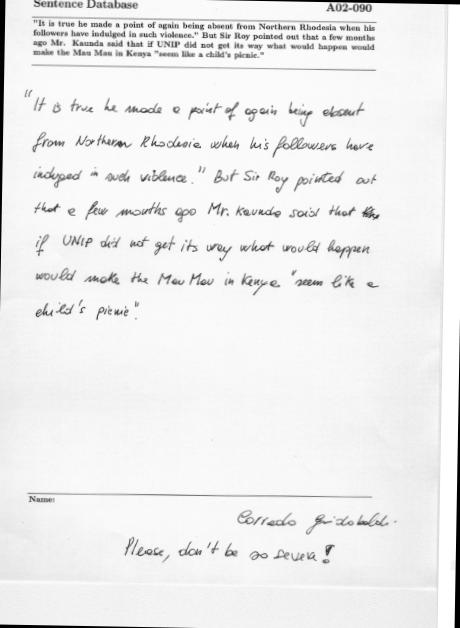 Sentence Database A02-090
"It is true he made a point of again being absent from Northern Rhodesia when his
followers have indulged in such violence." But Sir Roy pointed out that a few months
ago Mr. Kaunda said that if UNIP did not get its way what would happen would
make the Mau Mau in Kenya "seem like a child's picnic."
"It is true he made a point of again being absent
from Northern Rhodesia when his followers have
indulged in such violence." But Sir Roy pointed out
that a few months ago Mr. Kaunda said that
if UNIP did not get its way what would happen
would make the Mau Mau in Kenya "seem like a
child's picnic".
Name:
Corrado
Please, don't be so severe!